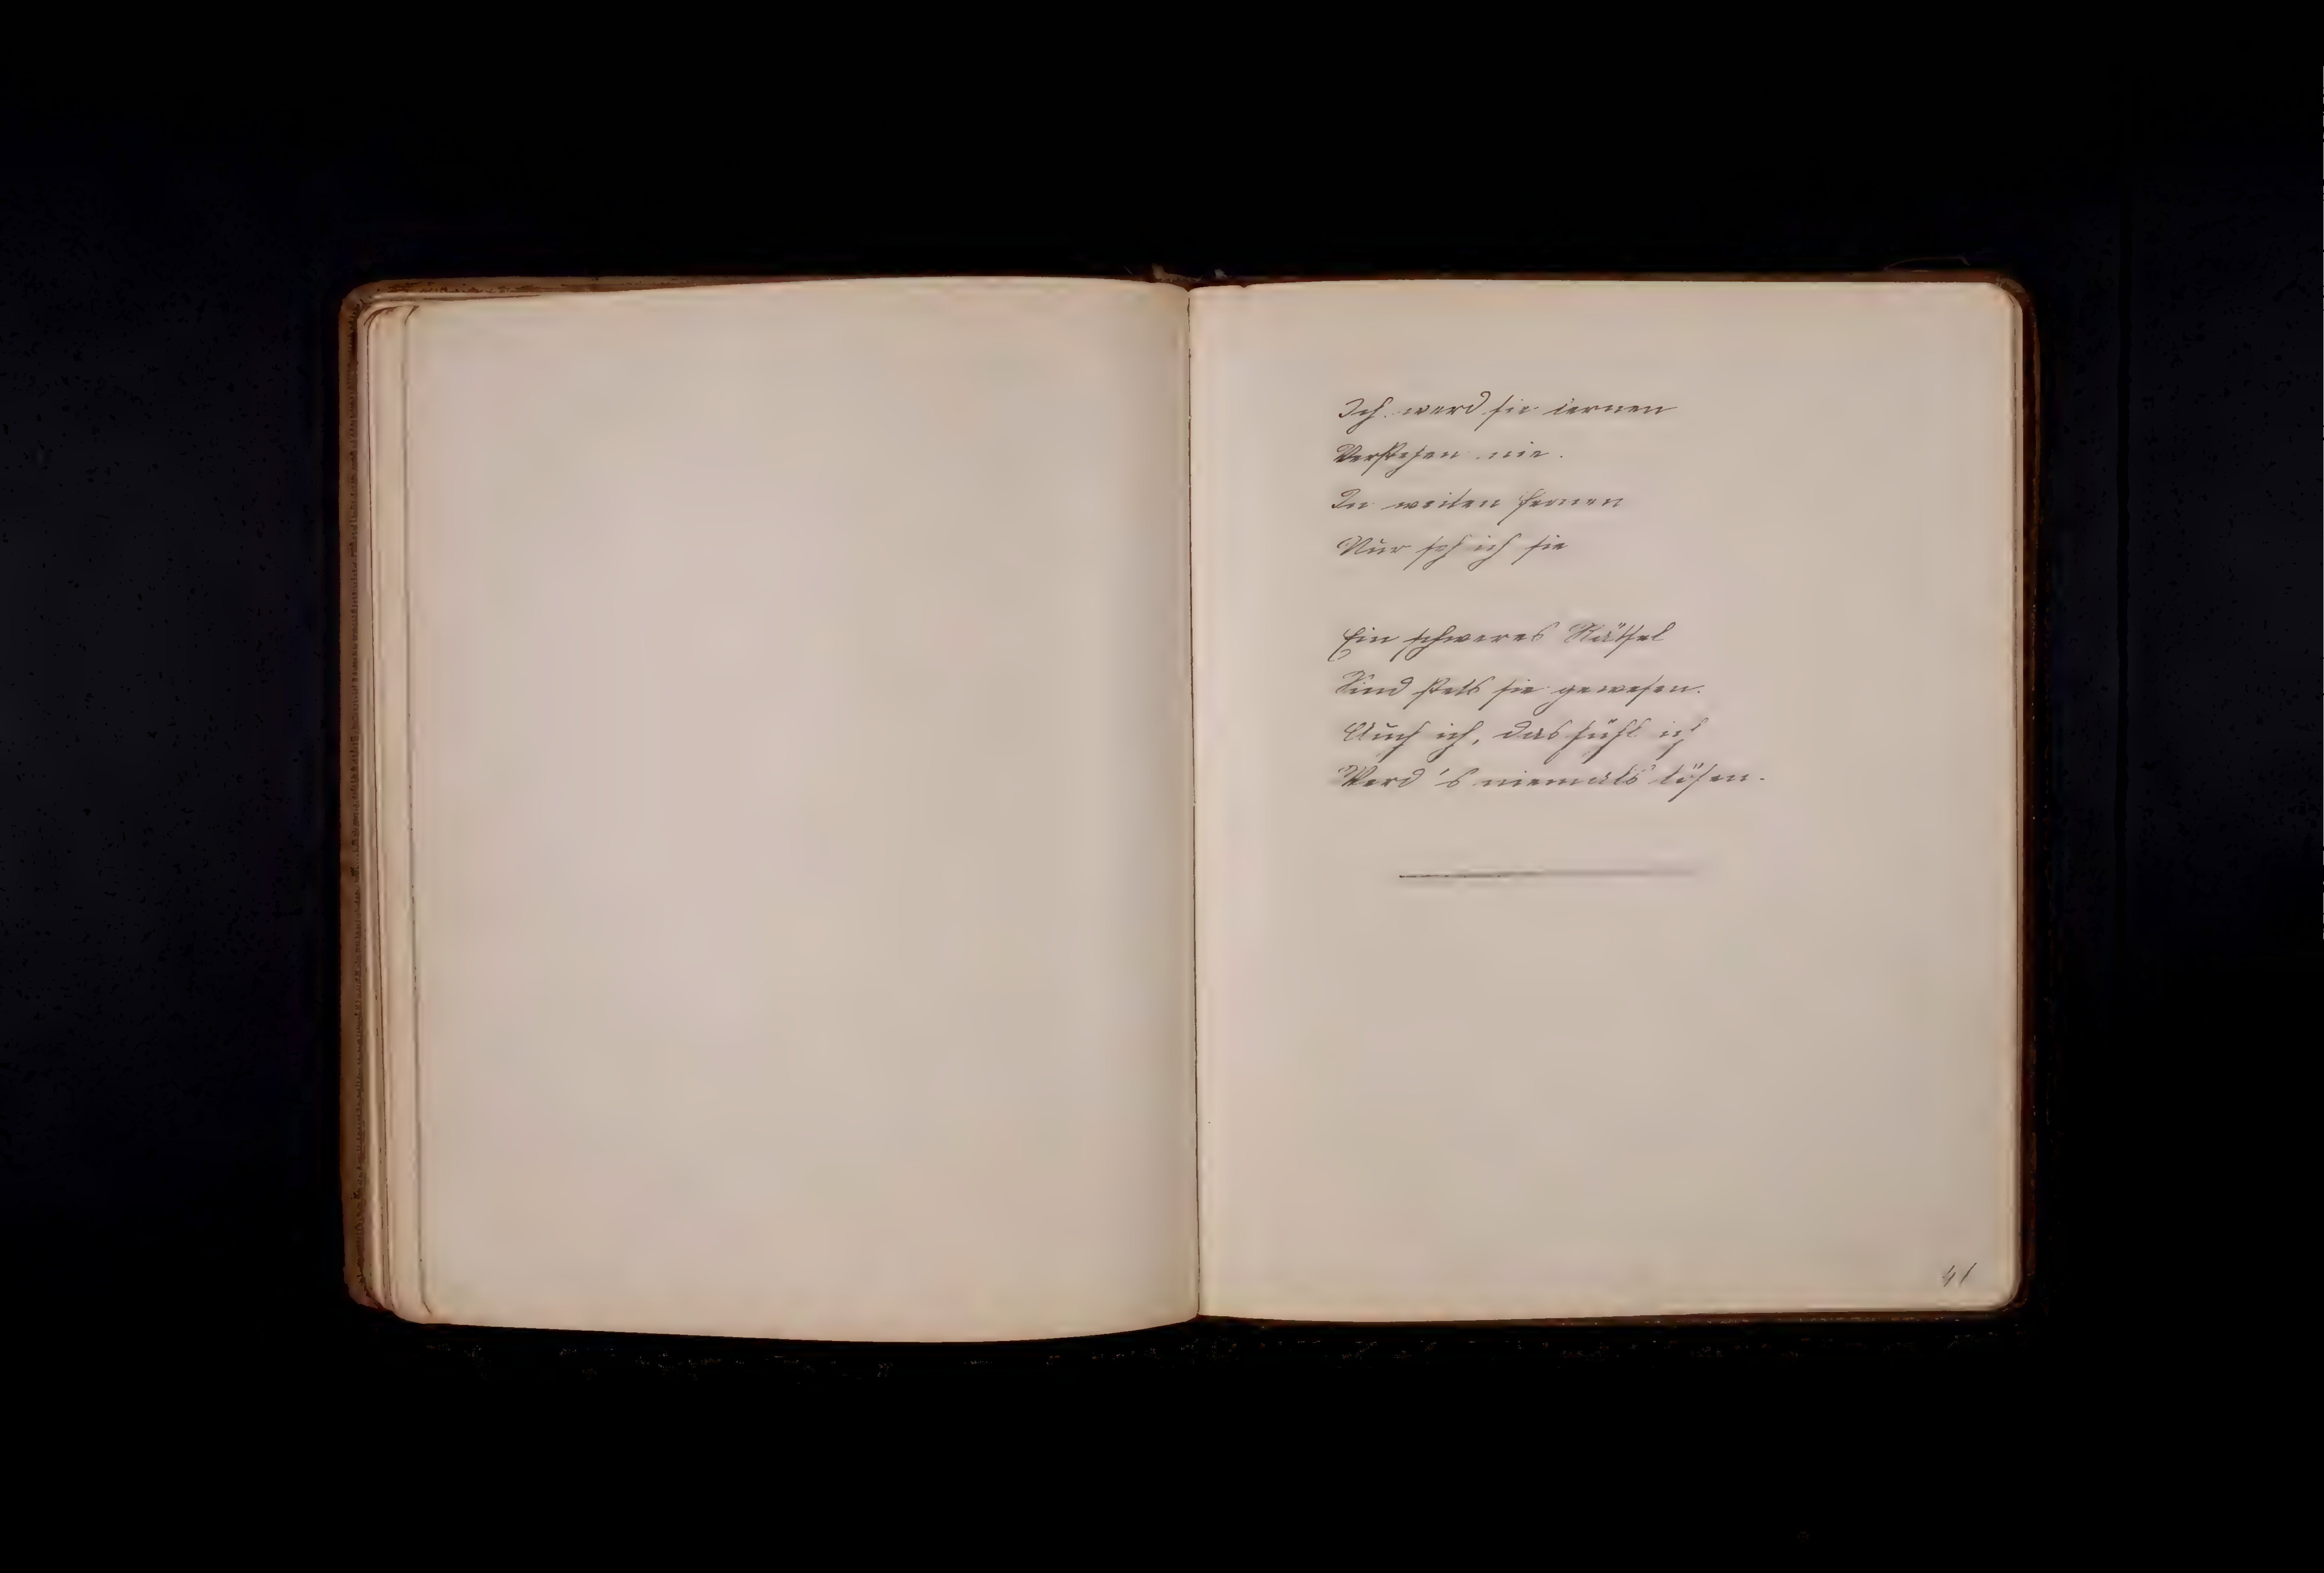 Ich werd sie lernen
Verstehen nie.
In weiten Fernen
Nur seh ich sie
Ein schweres Rätsel
Sind stets sie gewesen.
Auch ich, das fühl ich
Werd's niemals lösen.
41